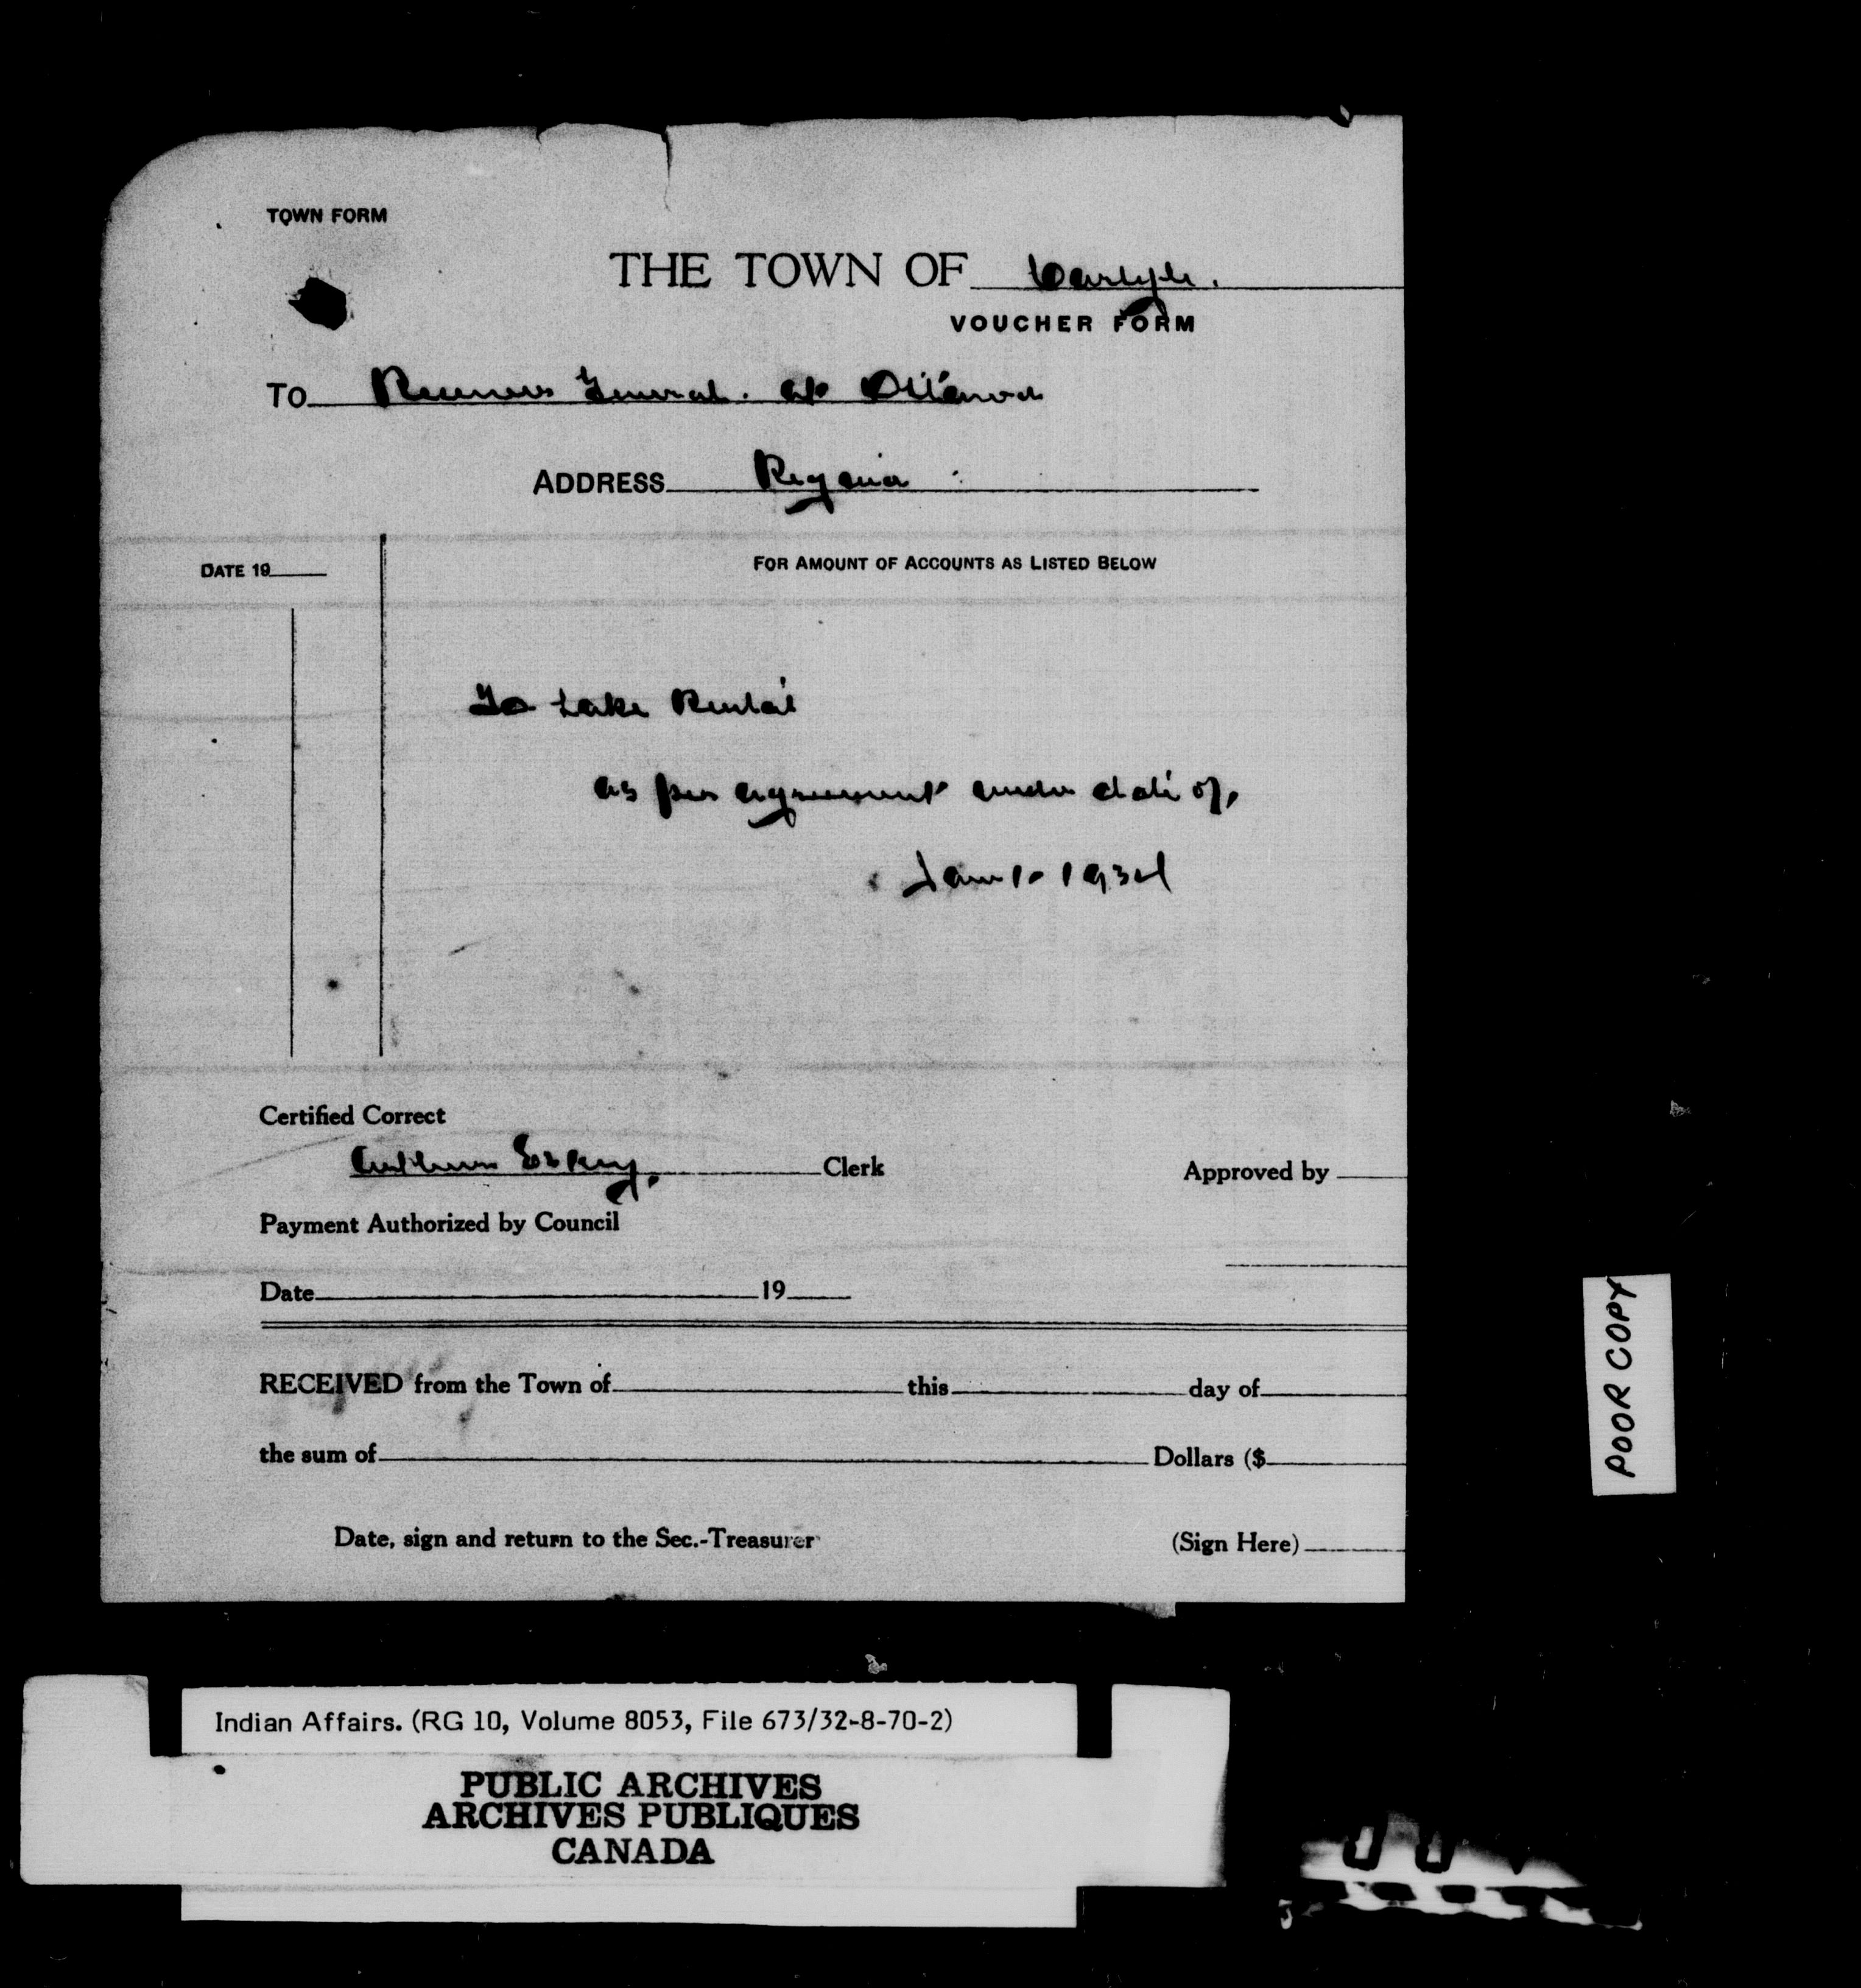 TOWN FORM
THE TOWN OF Carlyle.
VOUCHER FORM
TO Receiver General. of Ottawa
ADDRESS Regina
DATE 19
FOR AMOUNT OF ACCOUNTS AS LISTED BELOW
To Lake Rental
as per agreement under date of,
Jan 1. 1934
Certified Correct
Arthur Clerk
Approved by
Payment Authorized by Council
Date 19
RECEIVED from the Town of this day of
the sum of Dollars ($
Date, sign and return to the Sec.-Treasurer
(Sign Here)
POOR COPY
Indian Affairs. (RG 10, Volume 8053, File 673/32-8-70-2)
PUBLIC ARCHIVES
ARCHIVES PUBLIQUES
CANADA